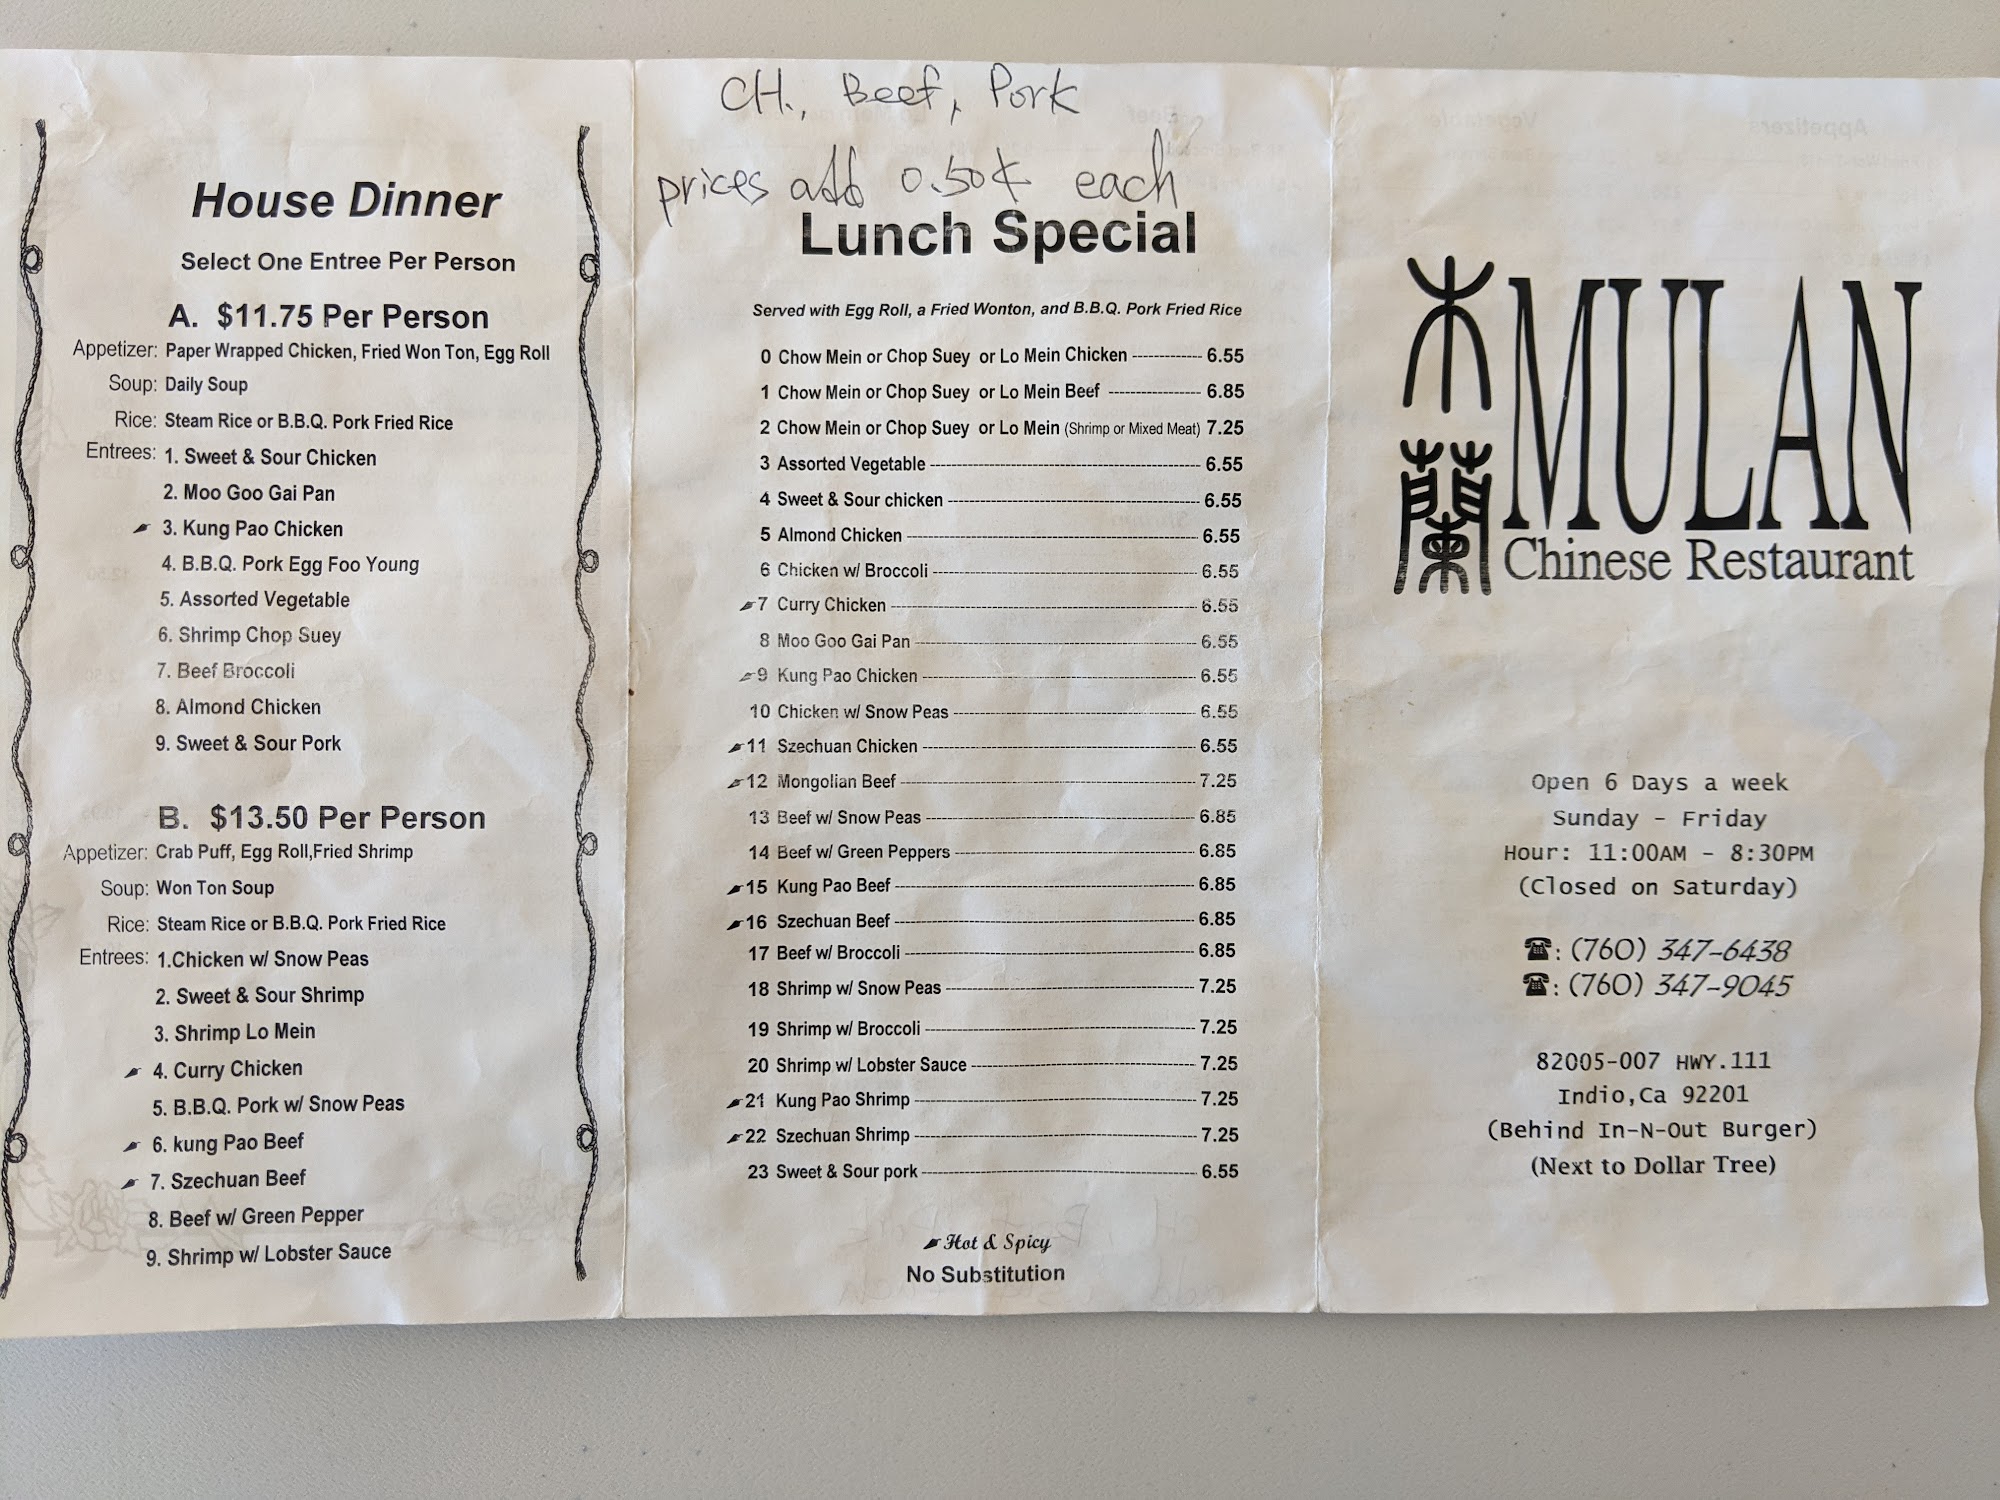 House Dinner
Select One Entree Per Person
A. $11.75 Per Person
Appetizer: Paper Wrapped Chicken, Fried Won Ton, Egg Roll
Soup: Daily Soup
Rice: Steam Rice or B.B.Q. Pork Fried Rice
Entrees: 1. Sweet & Sour Chicken
2. Moo Goo Gai Pan
3. Kung Pao Chicken
4. B.B.Q. Pork Egg Foo Young
5. Assorted Vegetable
6. Shrimp Chop Suey
7. Beef Broccoli
8. Almond Chicken
9. Sweet & Sour Pork
B. $13.50 Per Person
Appetizer: Crab Puff, Egg Roll,Fried Shrimp
Soup: Won Ton Soup
Rice: Steam Rice or B.B.Q. Pork Fried Rice
Entrees: 1.Chicken w/ Snow Peas
2. Sweet & Sour Shrimp
3. Shrimp Lo Mein
4. Curry Chicken
5. B.B.Q. Pork w/ Snow Peas
6. kung Pao Beef
7. Szechuan Beef
8. Beef w/ Green Pepper
9. Shrimp w/ Lobster Sauce
CH., Beef, Pork
prices add 0.50¢ each
Lunch Special
Served with Egg Roll, a Fried Wonton, and B.B.Q. Pork Fried Rice
0 Chow Mein or Chop Suey or Lo Mein Chicken 6.55
1 Chow Mein or Chop Suey or Lo Mein Beef 6.85
2 Chow Mein or Chop Suey or Lo Mein (Shrimp or Mixed Meat) 7.25
3 Assorted Vegetable 6.55
4 Sweet & Sour chicken 6.55
5 Almond Chicken 6.55
6 Chicken w/ Broccoli 6.55
7 Curry Chicken 6.55
8 Moo Goo Gai Pan 6.55
9 Kung Pao Chicken 6.55
10 Chicken w/ Snow Peas 6.55
11 Szechuan Chicken 6.55
12 Mongolian Beef 7.25
13 Beef w/ Snow Peas 6.85
14 Beef w/ Green Peppers 6.85
15 Kung Pao Beef 6.85
16 Szechuan Beef 6.85
17 Beef w/ Broccoli 6.85
18 Shrimp w/ Snow Peas 7.25
19 Shrimp w/ Broccoli 7.25
20 Shrimp w/ Lobster Sauce 7.25
21 Kung Pao Shrimp 7.25
22 Szechuan Shrimp 7.25
23 Sweet & Sour pork 6.55
Hot & Spicy
No Substitution
木蘭 MULAN
Chinese Restaurant
Open 6 Days a week
Sunday - Friday
Hour: 11:00AM - 8:30PM
(Closed on Saturday)
☎: (760) 347-6438
☎: (760) 347-9045
82005-007 HWY.111
Indio,Ca 92201
(Behind In-N-Out Burger)
(Next to Dollar Tree)